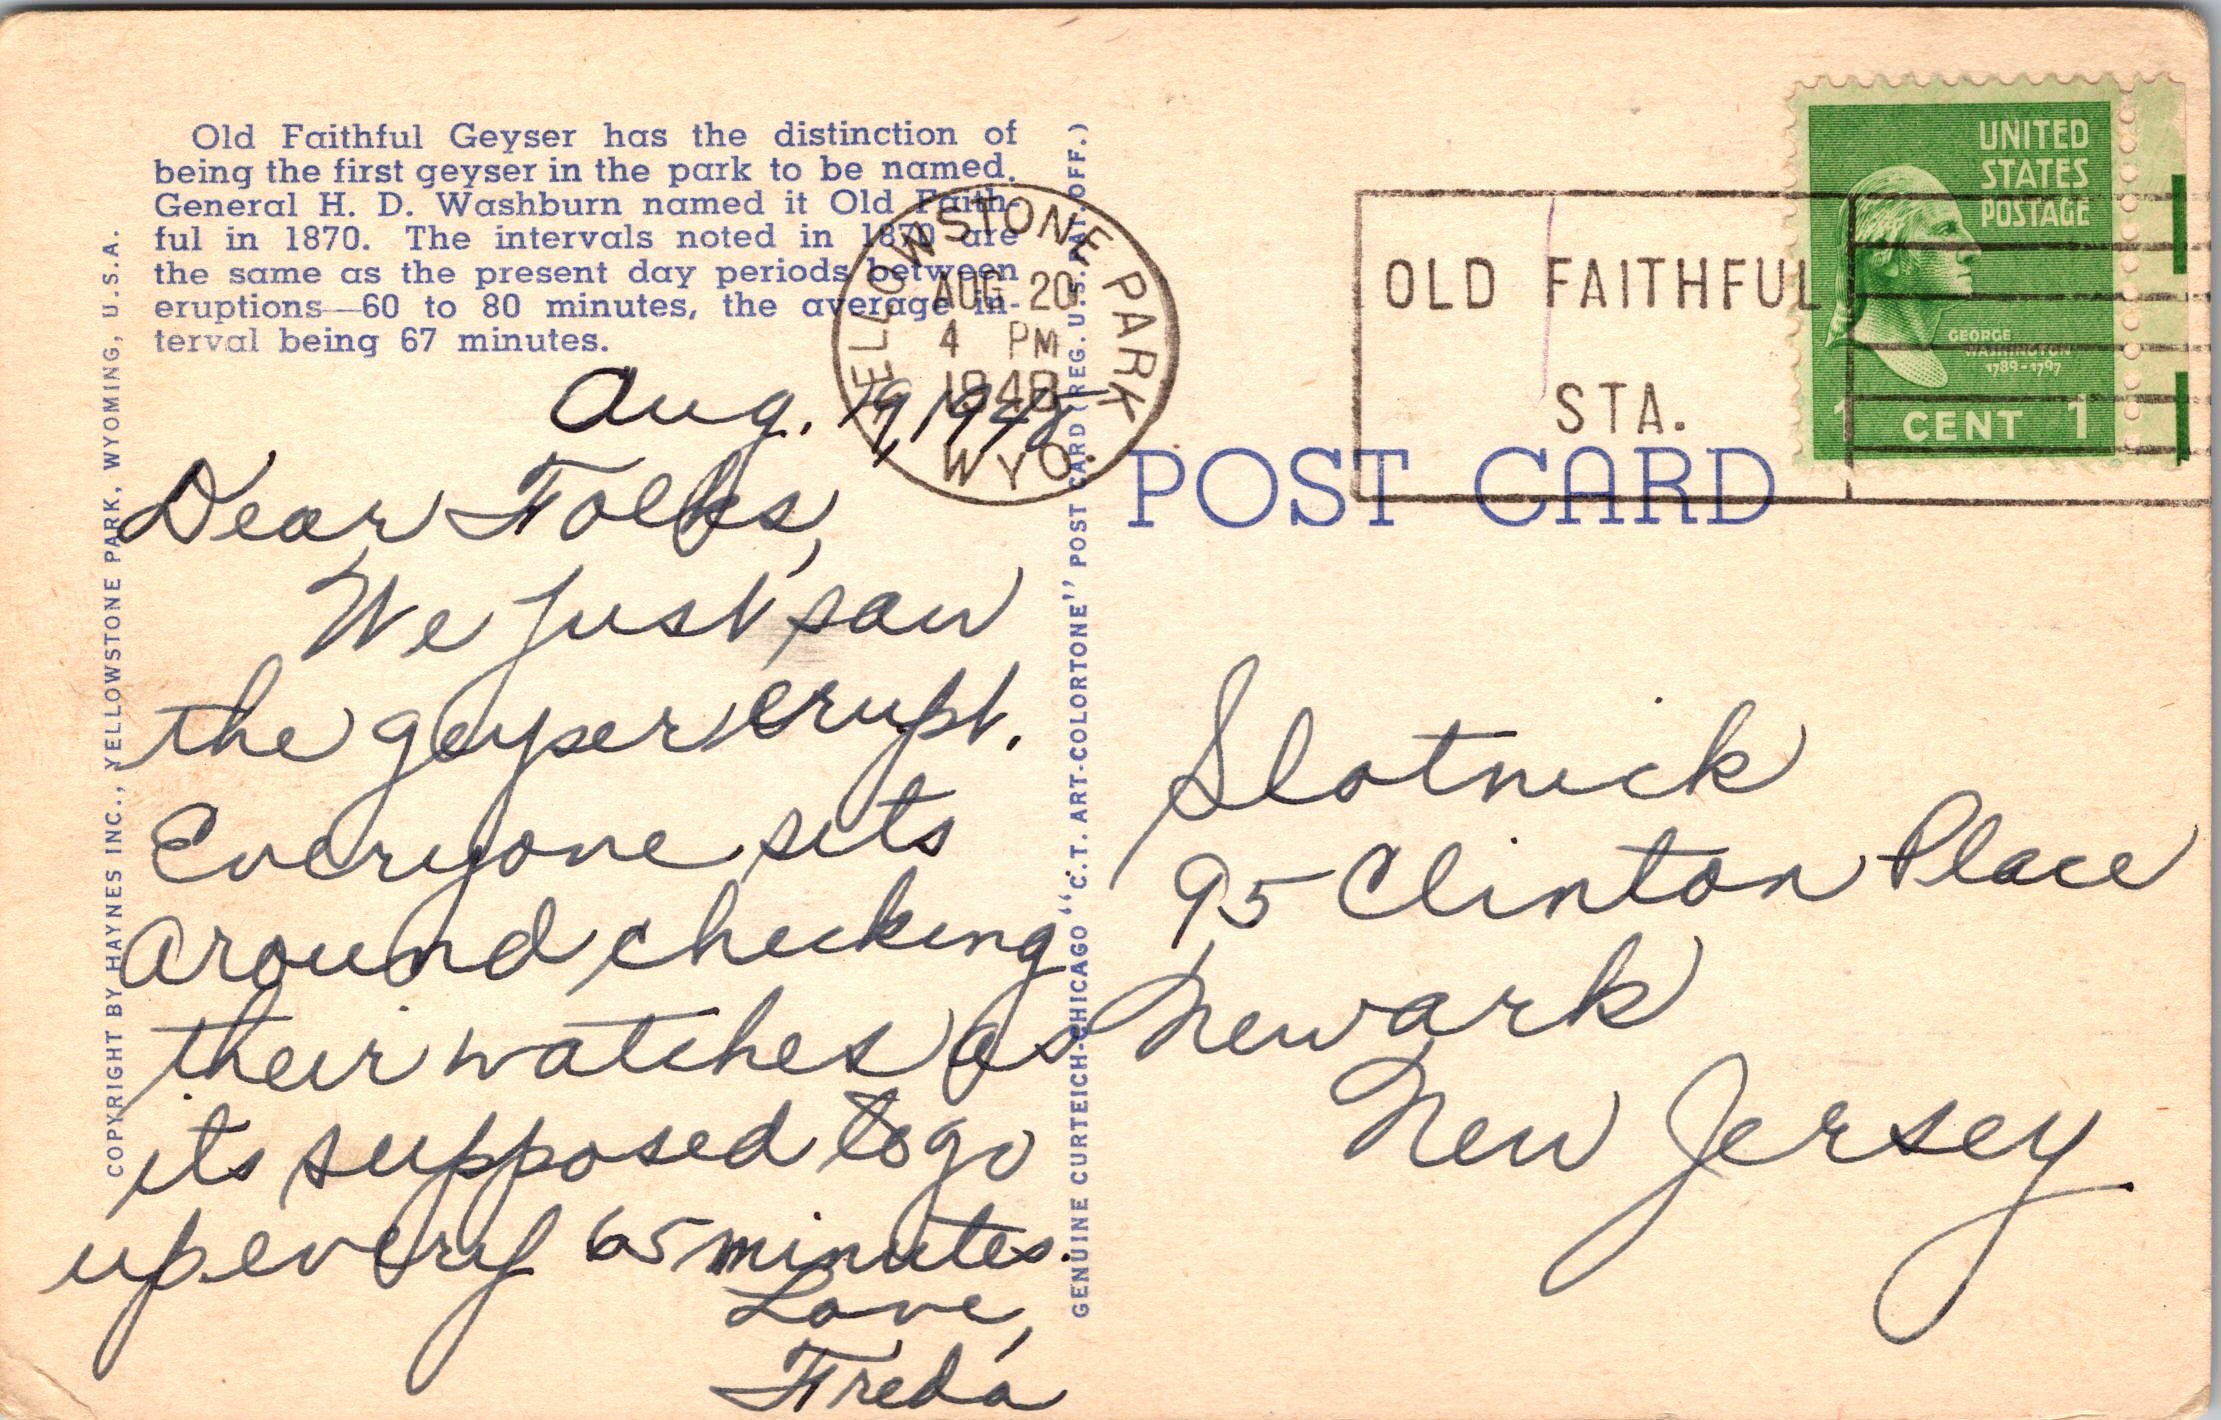 Old Faithful Geyser has the distinction of
being the first geyser in the park to be named.
General H. D. Washburn named it Old Faith-
ful in 1870. The intervals noted in 1870 are
the same as the present day periods between
eruptions—60 to 80 minutes, the average in-
terval being 67 minutes.
COPYRIGHT BY HAYNES INC., YELLOWSTONE PARK, WYOMING, U.S.A.
Aug. 19, 1948
Dear Folks,
We just saw
the geyser erupt.
Everyone sits
around checking
their watches as
its supposed to go
up every 65 minutes.
Love,
Freda
GENUINE CURTEICH-CHICAGO "C.T. ART-COLORTONE" POST CARD (REG. U.S. PAT. OFF.)
YELLOWSTONE PARK
AUG 20
4 PM
1948
WYO.
OLD FAITHFUL
STA.
UNITED
STATES
POSTAGE
GEORGE
WASHINGTON
1789-1797
1 CENT 1
POST CARD
Slotnick
95 Clinton Place
Newark
New Jersey